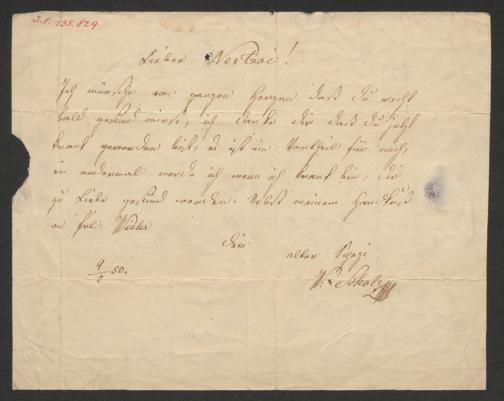 I.N. 135.829
Lieber Nestroi!
Ich wünsche von ganzen Herzen daß du recht
bald gesund wirst, ich danke dir daß du jetzt
krank geworden bist, es ist ein Vortheil für mich,
ein andermal werde ich wenn ich krank bin, dir
zu Liebe gesund werden. Nebst meinem Handkuß
an Frl. Weiler
dein
alter
9/2 50.
W. Scholz